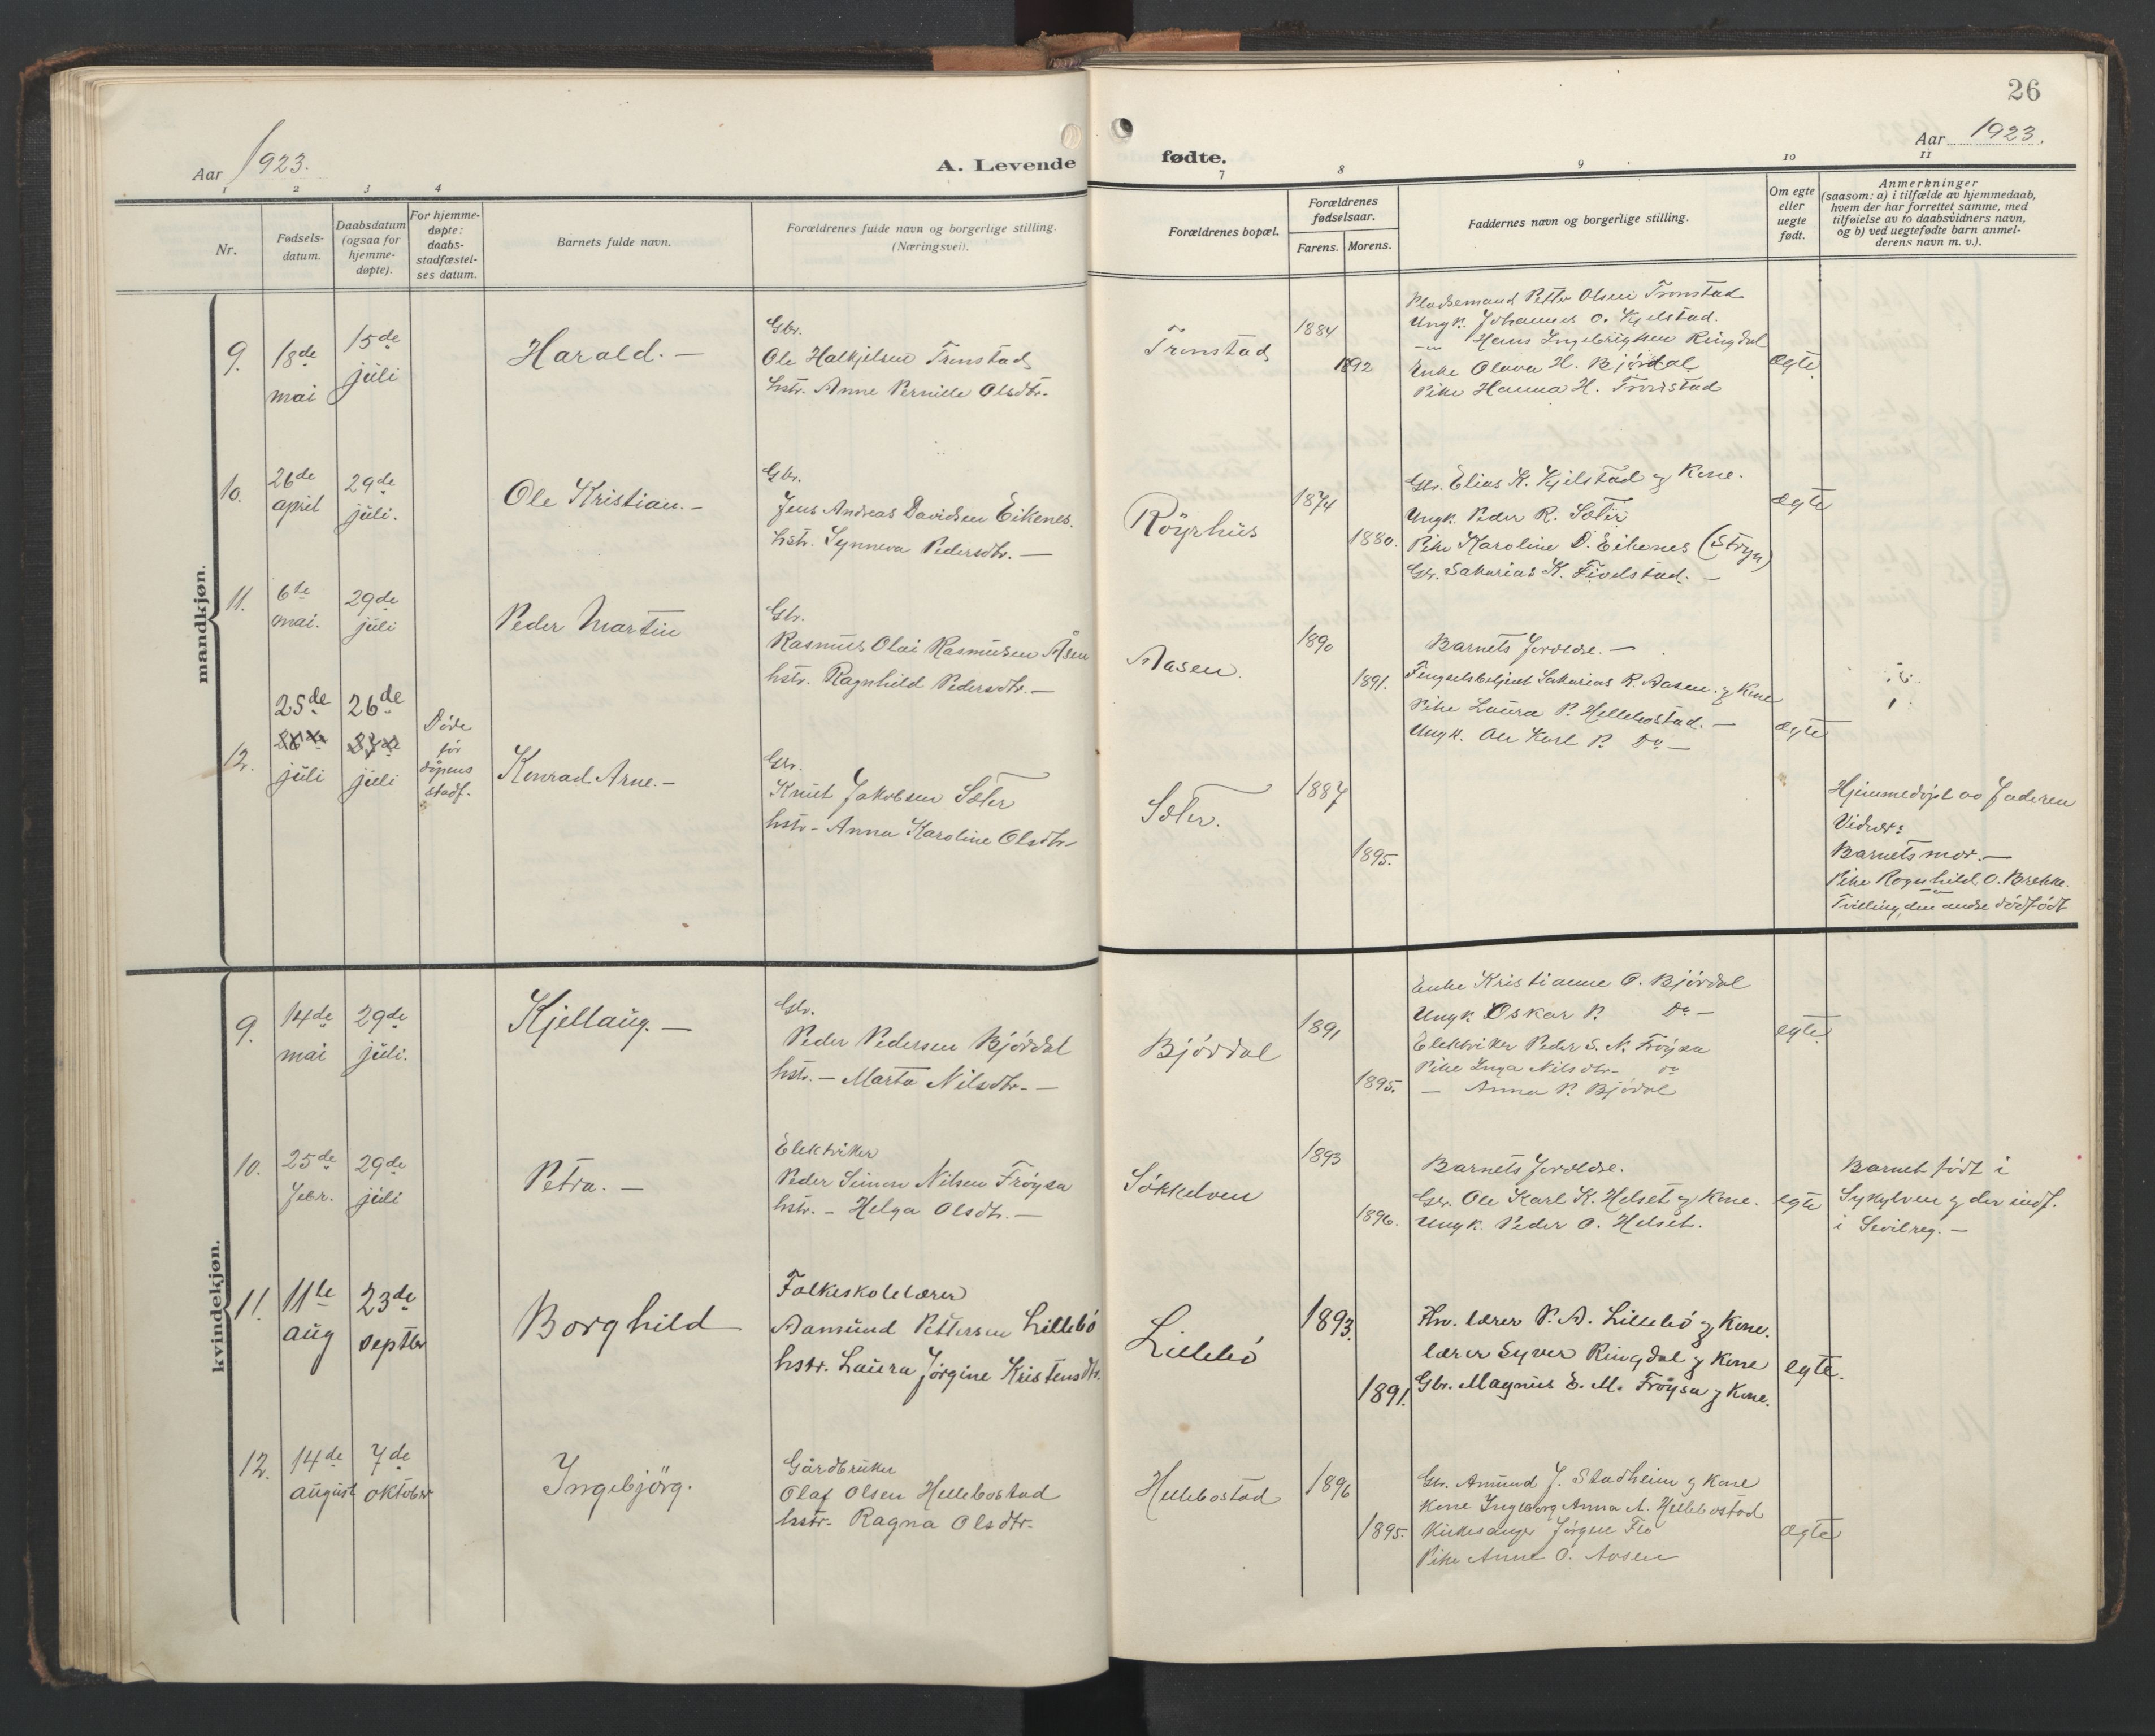 26
Aar 1923.
A. Levende
fødte.
Aar 1923.
1 2 3 4 7 8 9 10 11
Nr.
Fødsels-
datum.
Daabsdatum
(ogsaa for
hjemme-
døpte).
For hjemme-
døpte:
daabs-
stadfæstel-
ses datum.
Barnets fulde navn.
Forældrenes fulde navn og borgerlige stilling.
(Næringsvei).
Forældrenes bopæl.
Forældrenes
fødselsaar.
Farens. Morens.
Faddernes navn og borgerlige stilling.
Om egte
eller
uegte
født.
Anmerkninger
(saasom: a) i tilfælde av hjemmedaab,
hvem der har forrettet samme, med
tilføielse av to daabsvidners navn,
og b) ved uegtefødte barn anmel-
derens navn m. v.).
mandkjøn.
9.
18de
mai
15de
juli
Harald. —
Gbr.
Ole Halkjelsen Tronstad
hstr. Anne Pernille Olsdtr.
Tronstad
1884
1892
Pladsemand Petter Olsen Tronstad
Ungk. Johannes O. Kjelstad.
—"— Hans Ingebrigtsen Ringdal
Enke Olava H. Björdal
Pike Hanna H. Tronstad
ægte
10.
26de
april
29de
juli.
Ole Kristian. —
Gbr.
Jens Andreas Davidsen Eikenes.
hstr. Synneva Pedersdtr. —
Röyrhus
1874
1880.
Gbr. Elias K. Kjelstad og Kone.
Ungk. Peder R. Sæter
Pike Karoline D. Eikenes (Stryn)
Gbr. Sakarias K. Fivelstad. —
ægte
11.
6te
mai.
29de
juli
Peder Martin
Gbr.
Rasmus Olai Rasmusen Åsen
hstr. Ragnhild Pedersdtr. —
Aasen.
1890
1891.
Barnets Foreldre. —
Fengselsbetjent Sakarias R. Aasen og Kone
Pike Laura P. Hellebostad. —
Ungk. Ole Karl P. Do —
ægte
12.
25de
juli
26de
juli
Döde
för
döpens
stadf.
Konrad Arne. —
Gbr.
Knut Jakobsen Sæter
hstr. — Anna Karoline Olsdtr.
Sæter.
1887
1895.
Hjemmedöpt av Faderen
Vidner:
Barnets mor. —
Pike Ragnhild O. Brekke.
Tvilling, den andre dödfödt
kvindekjøn.
9.
14de
mai
29de
juli.
Kjellaug. —
Gbr.
Peder Pedersen Björdal
hstr. — Marta Nilsdtr. —
Björdal
1891
1895.
Enke Kristianne O. Björdal
Ungk. Oskar P. Do —
Elektriker Peder S. N. Fröysa
Pike Inga Nilsdtr. do
— Anna P. Björdal
egte
10.
25de
febr.
29de
juli
Petra. —
Elektriker
Peder Simon Nilsen Fröysa
hstr. — Helga Olsdtr. —
Sökkelven
1893
1896.
Barnets Foreldre.
Gbr. Ole Karl K. Helset og Kone.
Ungk. Peder O. Helset.
egte
Barnet födt i
Sykylven og der indf.
i Sivilreg. —
11.
11te
aug
23de
septbr
Borghild
Folkeskolelærer
Aamund Pettersen Lillebö
hstr. Laura Jörgine Kristensdtr.
Lillebö
1893.
1891.
Fhv. lærer P. A. Lillebö og Kone.
lærer Syver Ringdal og Kone
Gbr. Magnus E. M. Fröysa og Kone.
egte.
12.
14de
august
7de
oktober
Ingebjörg.
Gårdbruker
Olaf Olsen Hellebostad
hstr. Ragna Olsdtr.
Hellebostad
1896
1895.
Gbr. Amund J. Stadheim og Kone
Kone Ingeborg Anna A. Hellebostad
Kirkesanger Jörgen Flo
Pike Anne O. Aasen
ægte